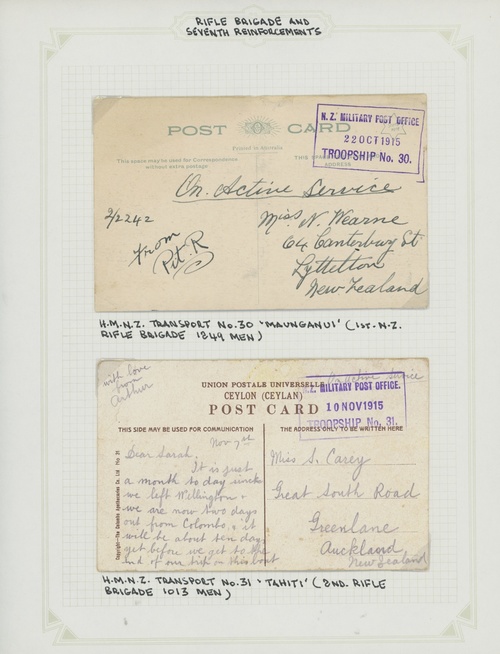 RIFLE BRIGADE AND
SEVENTH REINFORCEMENTS
N.Z. MILITARY POST OFFICE
22 OCT 1915
TROOPSHIP No. 30.
POST CARD
Printed in Australia
This space may be used for Correspondence
without extra postage
THIS SPACE
ADDRESS
On Active Service
2/2242
From
Pet. R
Miss N. Wearne
64 Canterbury St
Lyttelton
New Zealand
H.M.N.Z. TRANSPORT No.30 'MAUNGANUI' (1st. N.Z.
RIFLE BRIGADE 1849 MEN)
with love
from
Arthur
On active service
UNION POSTALE UNIVERSELLE
CEYLON (CEYLAN)
POST CARD
N.Z. MILITARY POST OFFICE.
10 NOV 1915
TROOPSHIP No. 31.
THIS SIDE MAY BE USED FOR COMMUNICATION
THE ADDRESS ONLY TO BE WRITTEN HERE
Nov 7th
Dear Sarah,
It is just
a month to day since
we left Wellington &
we are now two days
out from Colombo, & it
will be about ten days
yet before we get to the
end of our trip on this boat
Miss S. Carey
Great South Road
Greenlane
Auckland
New Zealand
Copyright—The Colombo Apothecaries Co. Ltd
H.M.N.Z. TRANSPORT No.31 'TAHITI' (2ND. RIFLE
BRIGADE 1013 MEN)